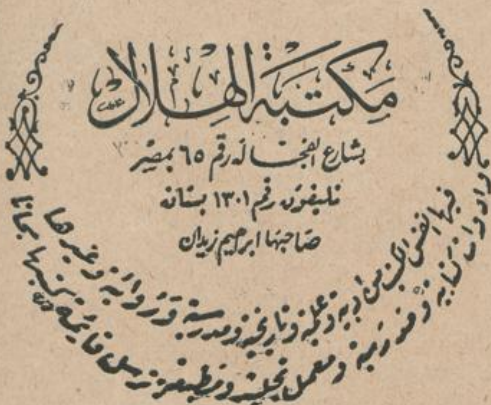 مكتبة الهلال
بشارع الفجالة رقم ٦٥ بمصر
تليفون رقم ١٣٠١ بستان
صاحبها ابراهيم زيدان
فيها انفس الكتب من ادبية وعلمية وتاريخية ومدرسية وروائية وغيرها
وادوات كتابية ومعمل تجليد ومطبعة ترسل قائمة كتبها مجانا